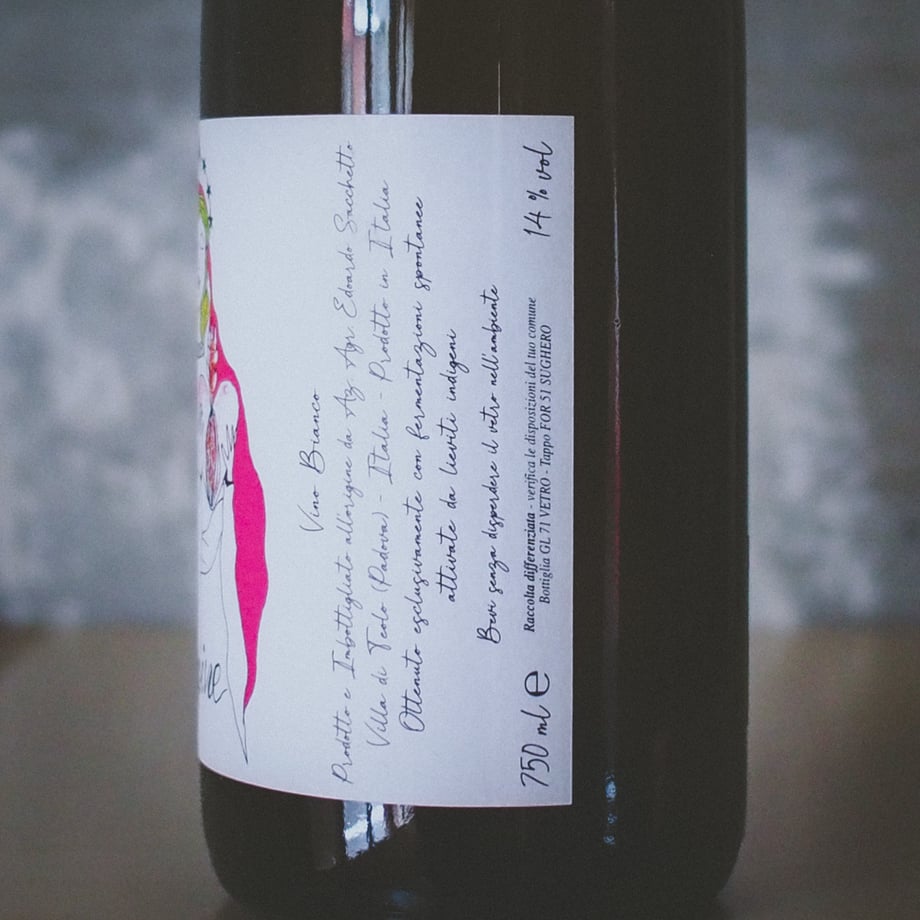 Vino Bianco
Prodotto e Imbottigliato all'origine da Az. Agr. Edoardo Sacchetto
Villa di Teolo (Padova) - Italia - Prodotto in Italia
Ottenuto esclusivamente con fermentazioni spontanee
attivate da lieviti indigeni
Bevi senza disperdere il vetro nell'ambiente
Raccolta differenziata - verifica le disposizioni del tuo comune
Bottiglia GL 71 VETRO - Tappo FOR 51 SUGHERO
750 ml ℮
14 % vol